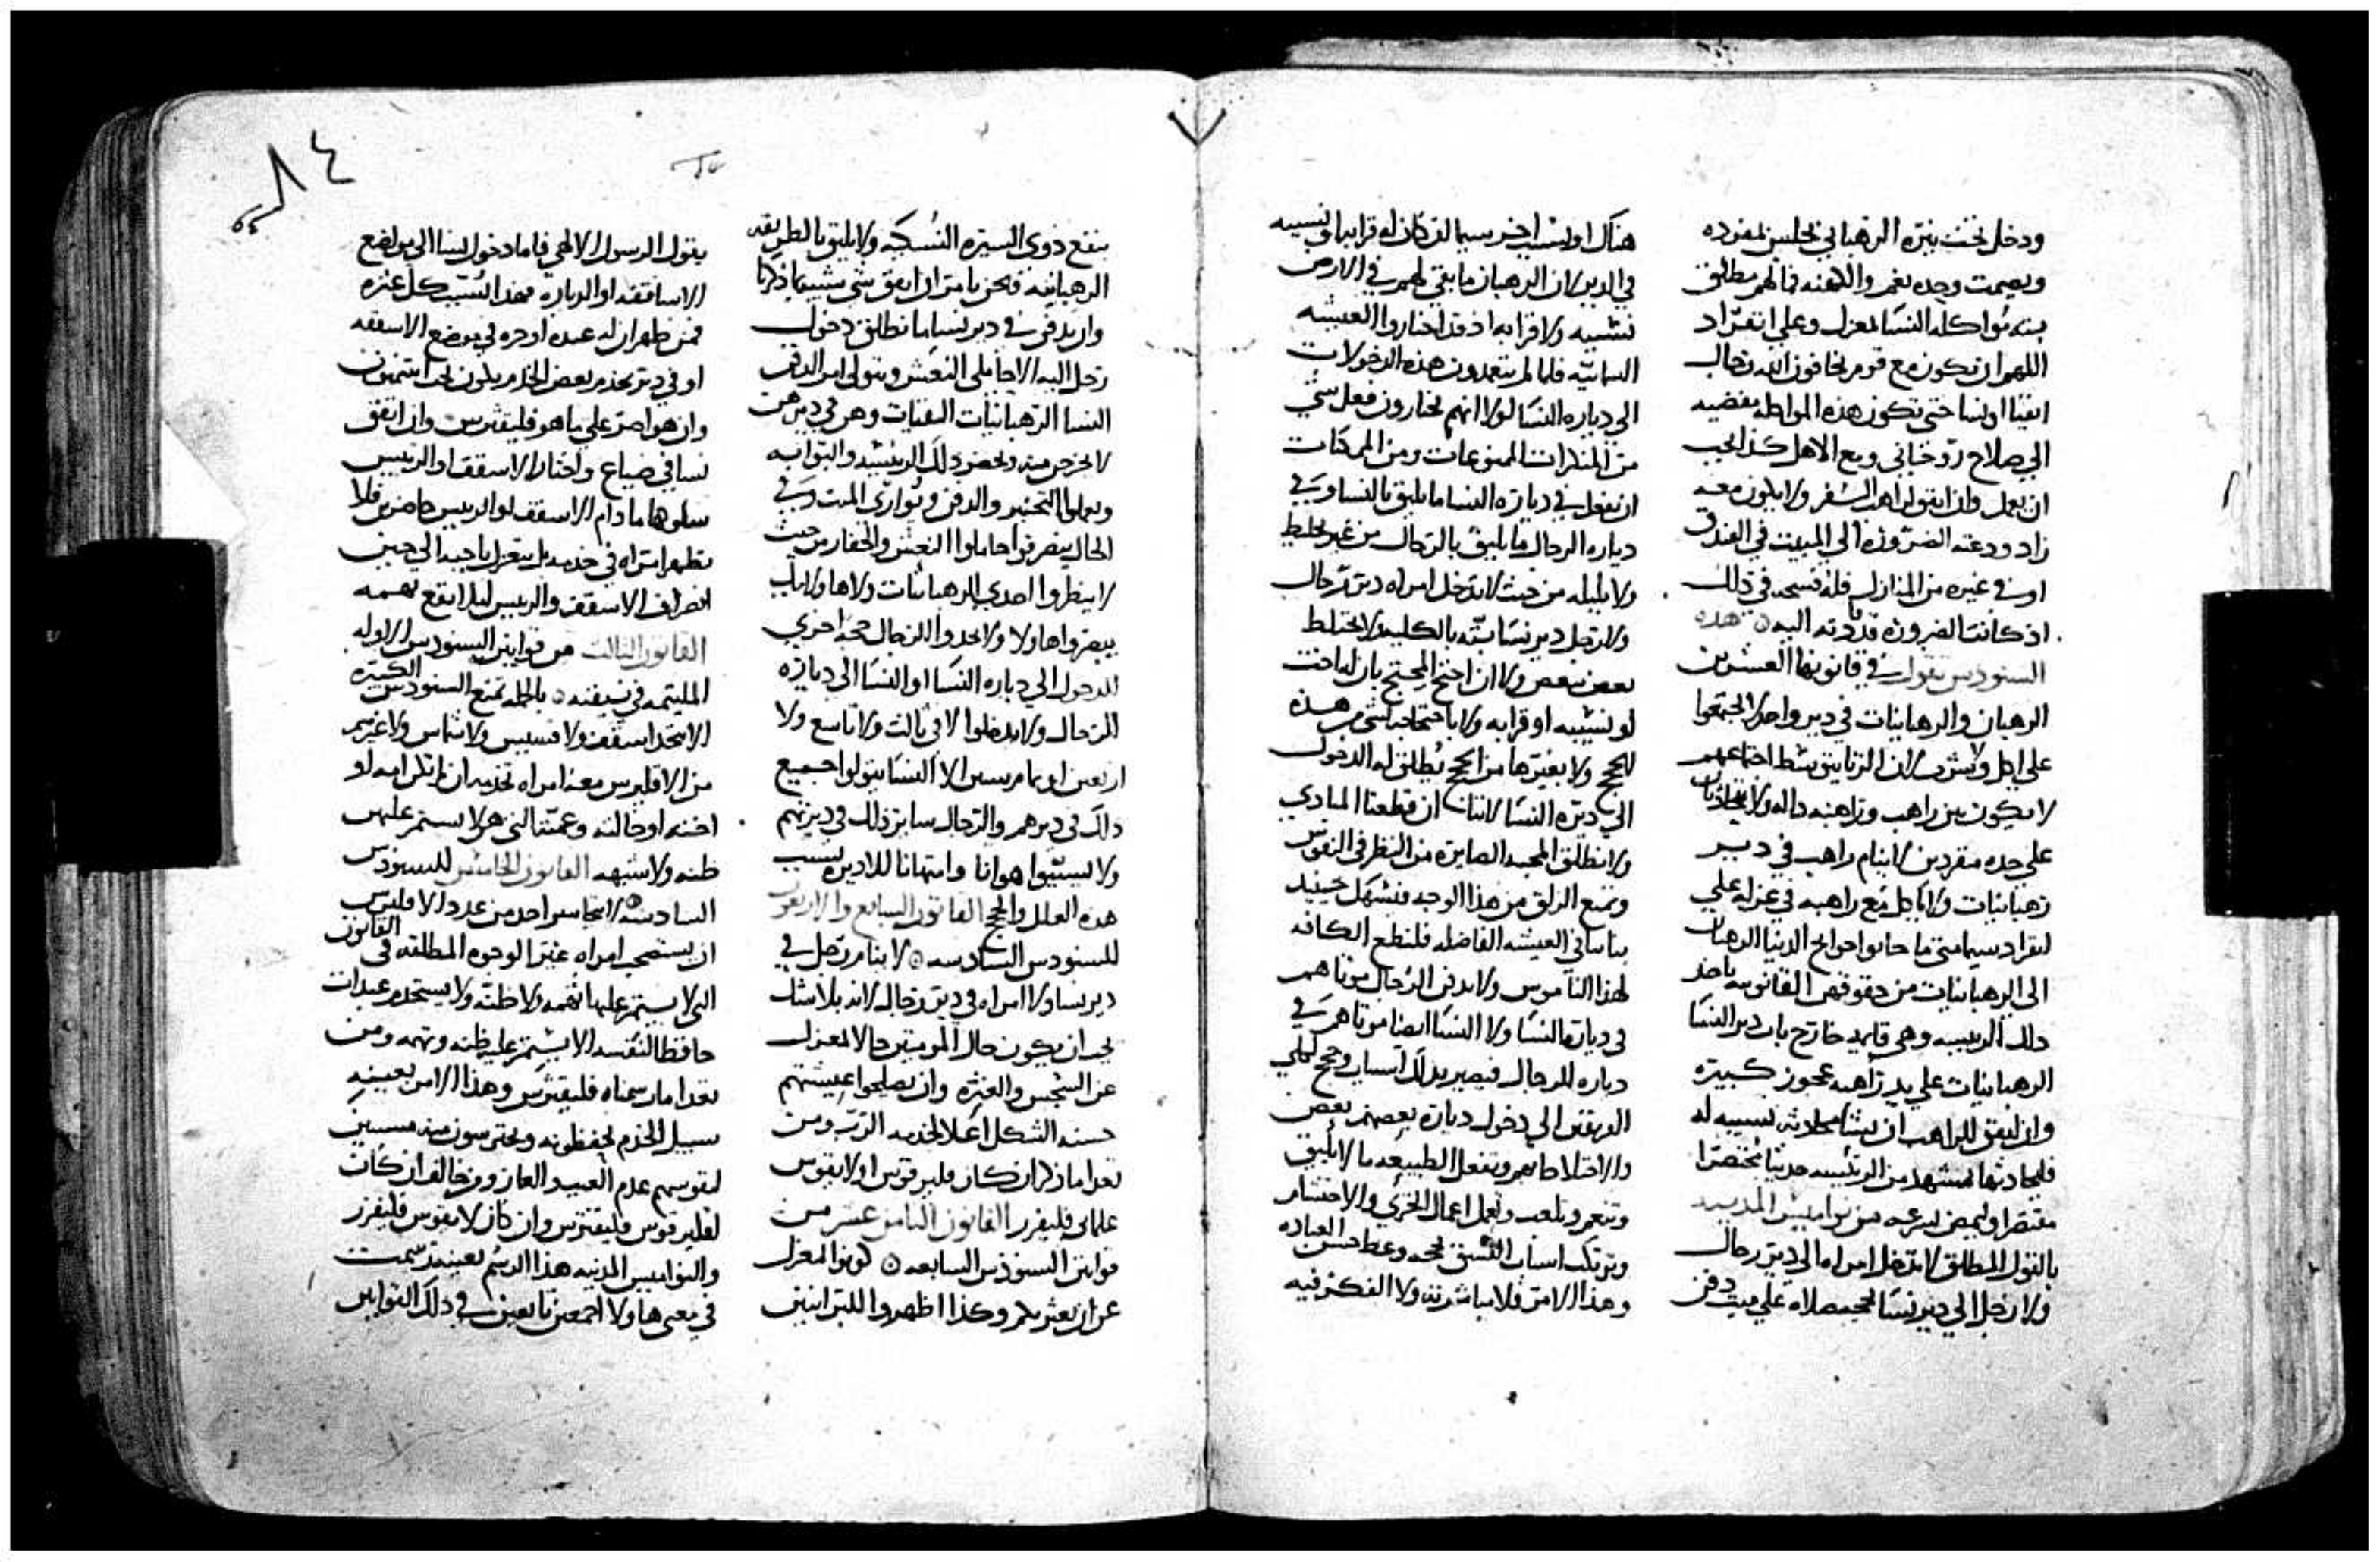 ودخل تحت نير الرهباني يجلس لمفرده
ويصمت وحده بغم واللهنه فما لهم مطلق
بته مواكلة النسا لمعزل وعلي انفراد
اللهم ان تكون مع قوم يخافون الله رجال
اتقيا او نسا حتي تكون هذه المواكله مفضيه
الي صلاح روحاني ومع الاهل كذا يجب
ان يعمل وان اتفق لراهب السفر ولا يكون معه
زاد ودعته الضروره الي المبيت في الفندق
او في غيره من المنازل فله فسحه في ذلك
اذ كانت الضروره قد دعته اليه هذه
السنودس تقول في قانونها العشرين
الرهبان والرهبانيات في دير واحد لا يجتمعوا
علي اكل وشرب لان الزنا يتوسط اجتماعهم
لا يكون بين راهب وراهبه داله ولا يتحادثان
علي حده منفردين لا ينام راهب في دير
رهبانيات ولا ياكل مع راهبه في عزله علي
انفراد سيما متي ما جابوا حوايج الدنيا الرهبان
الي الرهبانيات من حقوقهن القانونيه ياخذ
ذلك الرييسه وهي قايمه خارج باب دير النسا
الرهبانيات علي يد راهبه عجوز كبيره
وان اتفق للراهب ان يشا محادثه نسيبه له
فليحادثها بمشهد من الرييسه حديثا مختصرا
مقتصرا ويمض بسرعه من نواميس المدنيه
بالقول المطلق لا تدخل امراه الي دير رجال
ولا رجل الي دير نسا لحجه صلاه علي ميت دفن
هناك او لسبب اخر سيما ان كان له قرابه او نسيبه
في الدير لان الرهبان ما بقي لهم في الارض
نسيبه ولا قرابه اذ قد اختاروا العيشه
السمائيه فلما لم يتعمدون هذه الدخولات
الي دياره النسا لولا انهم يختارون فعل شي
من المنكرات الممنوعات ومن الممكنات
ان يفعل في دياره النسا ما يليق بالنسا وفي
دياره الرجال ما يليق بالرجال من غير تخليط
ولا بلبله من حيث لا تدخل امراه دير رجال
ولا رجل دير نسا بته بالكليه لا يختلط
بعض ببعض ولا ان احتج المحتج بان له اخت
او نسيبه او قرابه ولا باحتجاجه لشي من هذه
الحجج ولا بغيرها من الحجج يطلق له الدخول
الي ديره النسا لاننا ان قطعنا المبادي
ولا نطلق المحبه الصايره من النظر في النفوس
ونمنع الزلق من هذا الوجه فتسهل حينيذ
بناساني العيشه الفاضله فلنطع الكافه
لهذا الناموس ولا يدفن الرجال موتاهم
في ديارة النسا ولا النسا ايضا موتاهم في
دياره الرجال فيصير بذلك اسباب وحجج لكلي
الفريقين الي دخول دياره بعضهم بعض
والاختلاط بهم وتفعل الطبيعه ما لا يليق
وتنعم وتلعب وتعمل اعمال الخزي والاحتشام
وترتك اسباب الفسق بحجه وعظ حسن العباده
وهذا الامر فلا مباشرته ولا الفكر فيه
ينفع ذوي السيره النسكيه ولا يليق بالطريقه
الرهبانيه فنحن نامر ان اتفق شي شبيه بما ذكرنا
واريد دفن في دير نسا ما نطلق دخول
رجل اليه الا حاملي النعش ومتولي امر الدفن
النسا الرهبانيات الفتيات وهن في ديرهن
لا يخرجن منه ويحضر ذلك الرييسه والبوابه
ويعملوا التجنيز والدفن وتواري الميت وفي
الحال ينصرفوا حاملوا النعش والحفار من حيث
لا ينظروا احدي الرهبانيات ولا هاولايك
يبصروا هاولا ولا يجدوا الرجال حجه اخري
للدخول الي دياره النسا او النسا الي دياره
الرجال ولا يدخلوا لا في ثالث ولا تاسع ولا
اربعين او تمام سنين الا النسا يتولوا جميع
ذلك في ديرهم والرجال ساير ذلك في ديرتهم
ولا يسببوا هوانا وامتهانا للاديره بسبب
هذه العلل والحجج القانون السابع والاربعون
للسنودس السادسه لا ينام رجل في
دير نسا ولا امراه في دير رجال لانه بلا شك
يجب ان يكون حال المومنين حالا لمعزل
عن النجس والعثره وان يصلحوا عيشتهم
حسنه الشكل اهلا لخدمه الرب ومن
تعدا ما ذكر ان كان قليرقوس او لايقوس
علماني فليفرز القانون الثامن عشر من
قوانين السنودس السابعه كونوا لمعزل
عن ان يعثر بكم وكذا اظهروا للبرانيين
يقول الرسول الالهي فاما دخول نسا الي مواضع
الاساقفه او الدياره فهذا لسبب كل عثره
فمن ظهر ان له عبده او حره في موضع الاسقفه
او في دير يخدم بعض الخدم يكون تحت انتهون
وان هو اصر علي ما هو فليقترس وان اتفق
نسا في ضياع واختار الاسقف او الرييس
سلوكها ما دام الاسقف او الرييس حاضر فلا
تظهر امراه في خدمه بل بتعزل ناحيه الي حين
انصراف الاسقف والرييس ليلا يقع تهمه
القانون الثالث من قوانين السنودس الاوله
الملتيمه في نيقيه بالجمله تمنع السنودس الكبيره
الا يتخذ اسقف ولا قسيس ولا شماس ولا غيرهم
من الاقليرس معه امراه تخدمه ان لم تكن امه او
اخته او خالته وعمته التي هولا يستمر عليهن
ظنه ولا شبهه القانون الخامس للسنودس
السادسه لا يتجاسر احد من عدد الاقليرس
ان يستصحب امراه غير الوجوه المطلقه في القانون
التي لا يستمر عليها تهمه ولا ظنه ولا يستخدم عبدات
حافظا لنفسه الا يستمر عليه ظنه وتهمه ومن
تعدا ما رسمناه فليقترس وهذا الامر بعينه
سبيل الخدم يحفظونه ويحترسون منه مسببين
لنفوسهم عدم العيب والعار ومن خالف ان كان
اقليرقوس فليقترس وان كان لايقوس فليفرز
والنواميس المدنيه هذا الرسم بعينه رسمت
في معني هاولا اجمعين تابعين في ذلك القوانين